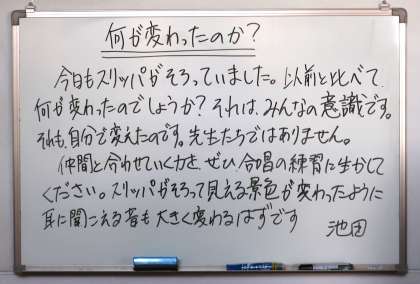 何が変わったのか?
今日もスリッパがそろっていました。以前と比べて
何が変わったのでしょうか?それは、みんなの意識です。
それも、自分で変えたのです。先生たちではありません。
仲間と合わせていく力を、ぜひ、合唱の練習に生かして
ください。スリッパがそろって見える景色が変わったように
耳に聞こえる音も大きく変わるはずです
池田